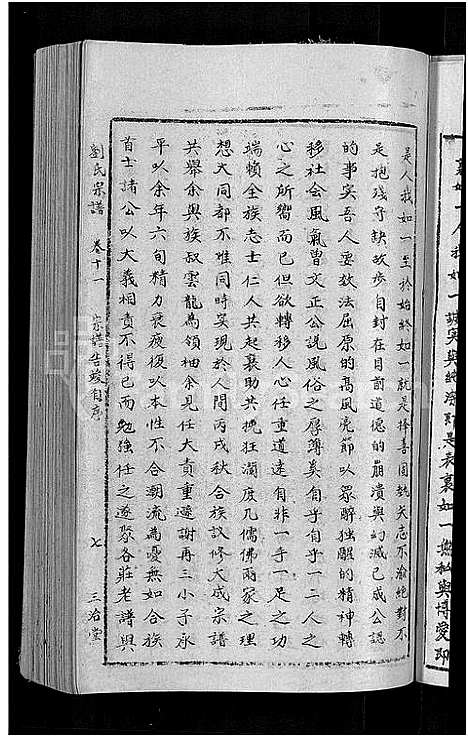 裏如一人我如一誠實與純潔即是表裏如一無私與博愛即
是人我如一至於始終如一就是擇善固執矢志不渝絕對不
是抱殘守缺故步自封在目前道德的崩潰與幻滅已成公認
的事实吾人亟效法屈原的高風亮節以眾醉独醒的精神轉
移社会風氣曾文正公說風俗之厚薄奚自乎自乎一二人之
心之所嚮而已但欲轉移人心任重道遠自非一手一足之功
端賴全族志士仁人共起襄助共挽狂瀾庶几儒佛兩家之理
想大同都不难同時实現於人間丙戌秋合族议修大成宗譜
共舉余與族叔雲龍為領袖余見任大責重遜謝再三小子永
平以余年六旬精力衰疲復以本性不合潮流為憂無如合族
首士諸公以大義相責不得已而勉強任之遂聚各莊老譜與
劉氏宗譜 卷十一 宗譜告竣自序 七 三治堂